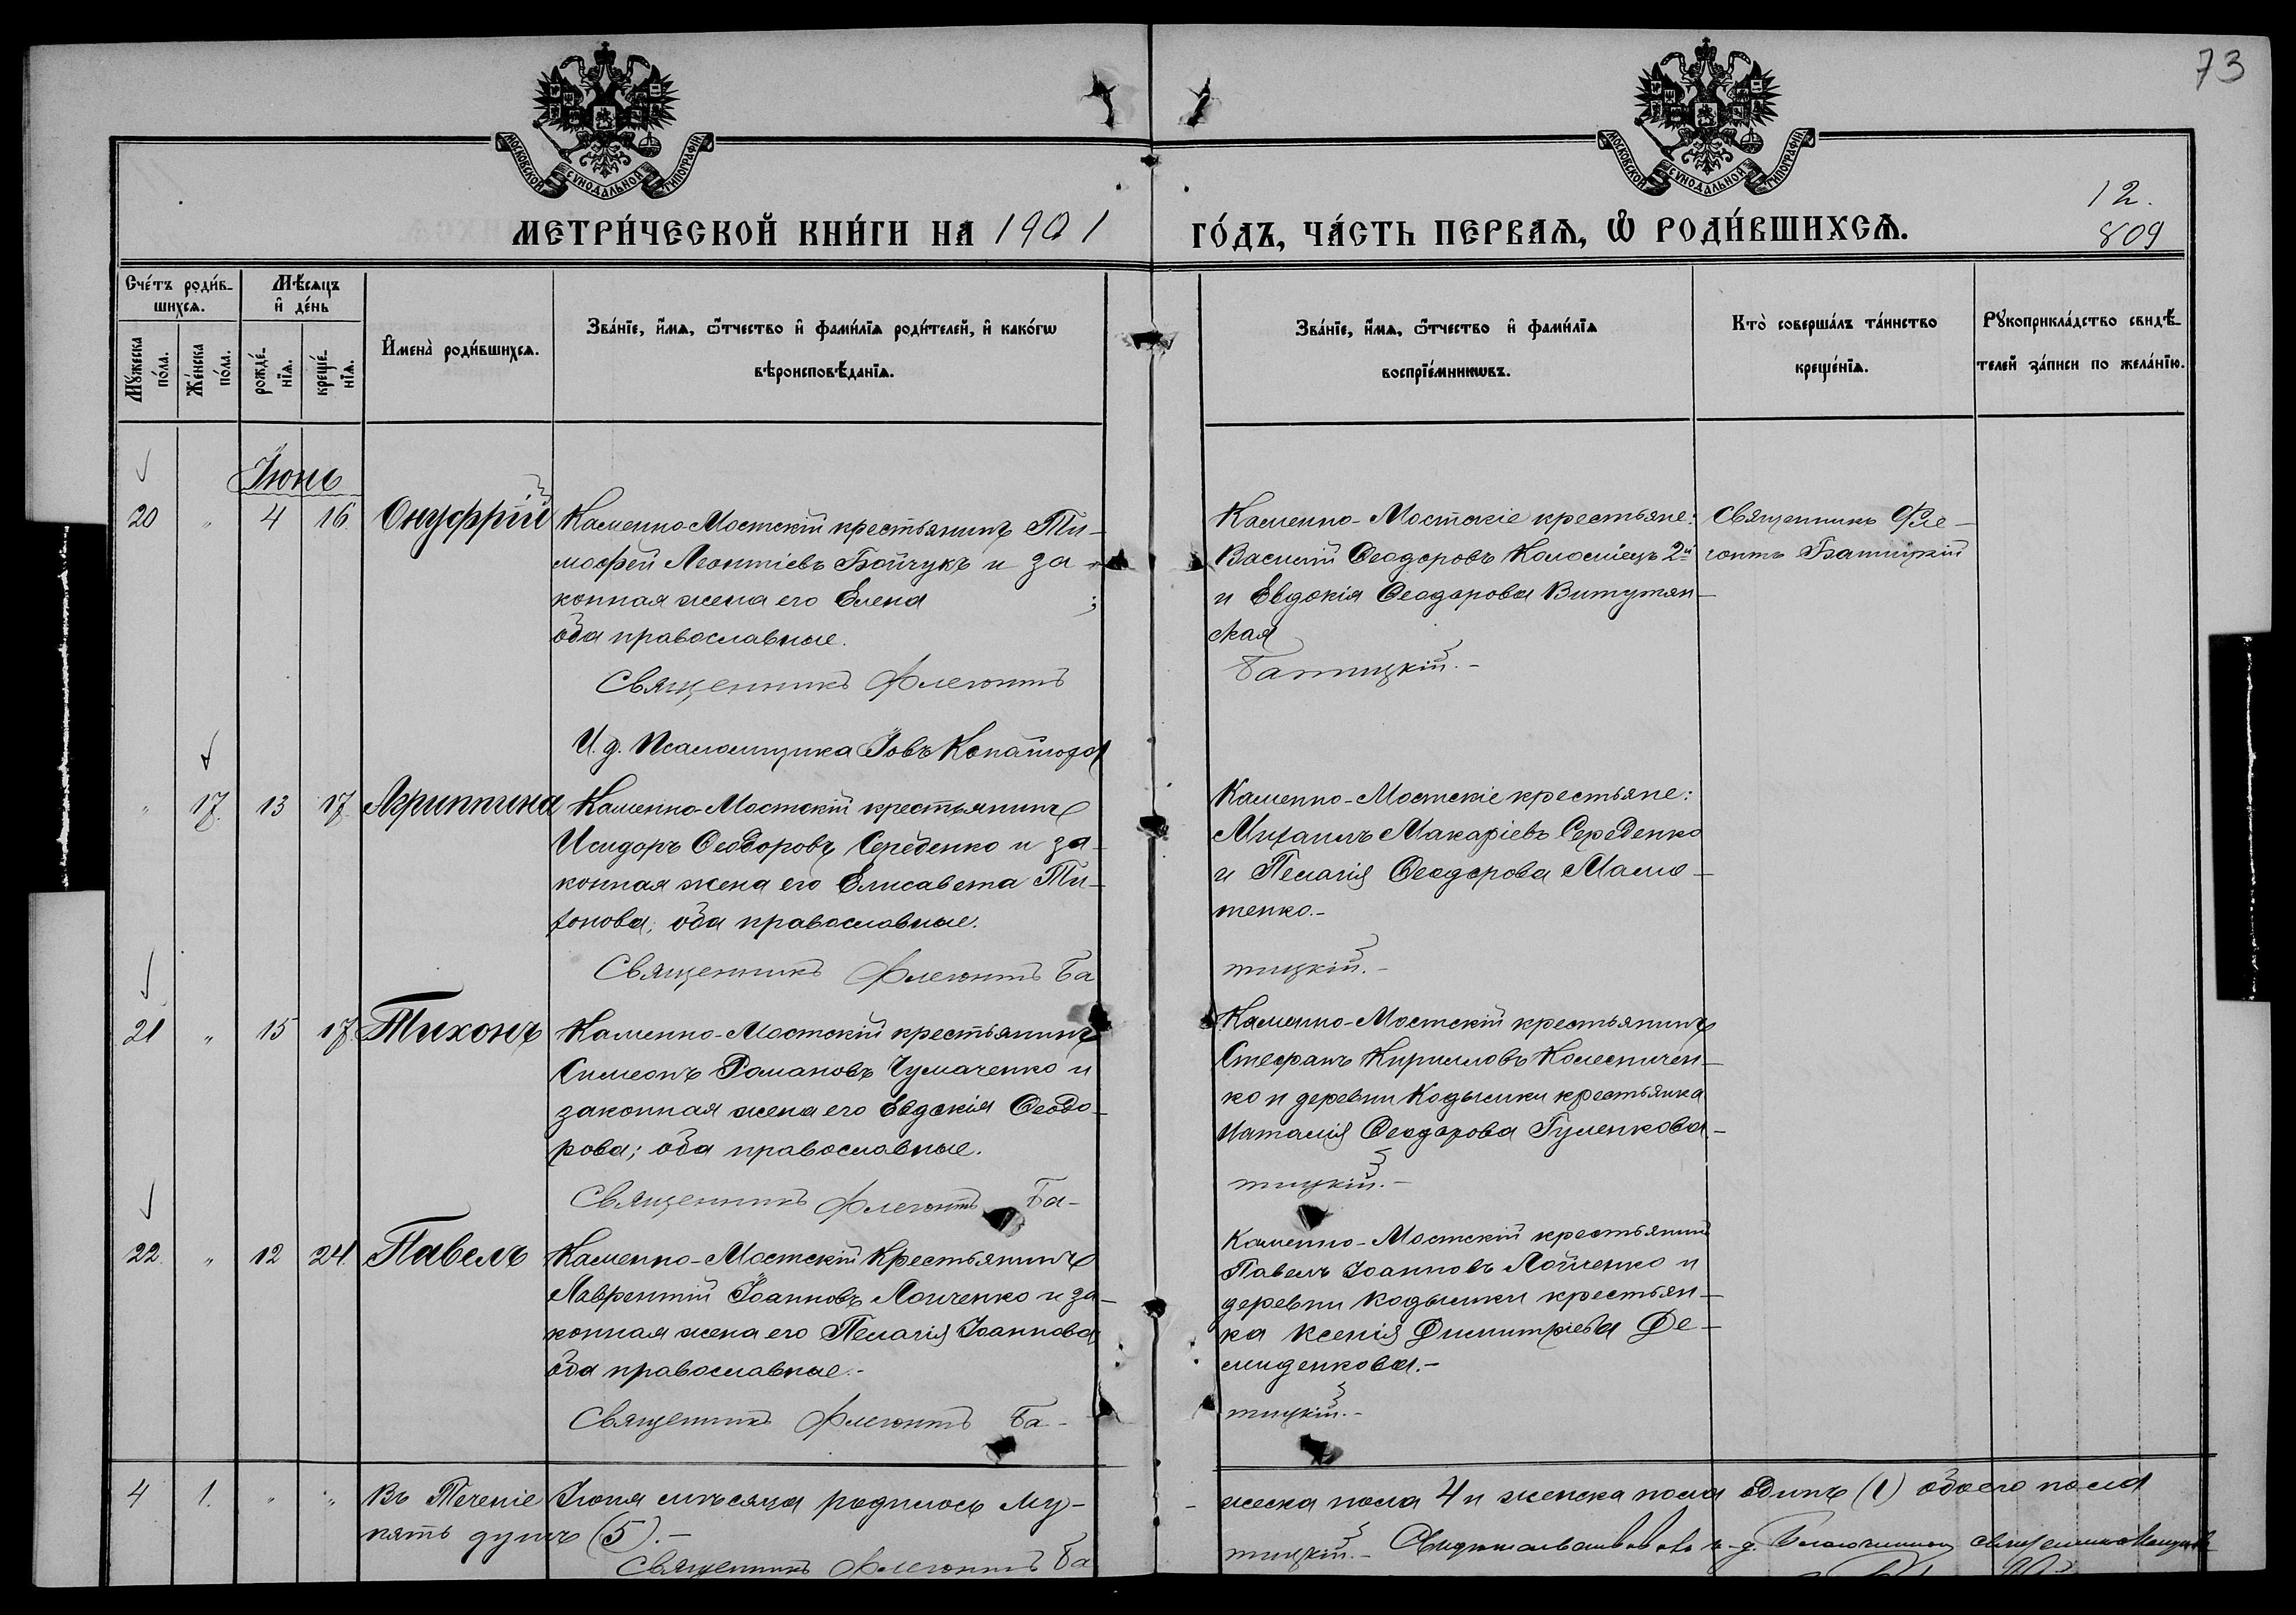 73
МОСКОВСКОЙ СѴНОДАЛЬНОЙ ТИПОГРАФІИ
МОСКОВСКОЙ СѴНОДАЛЬНОЙ ТИПОГРАФІИ
12.
809
МЕТРИ́ЧЕСКОЙ КНИ́ГИ НА 1901
ГО́ДЪ, ЧА́СТЬ ПЕРВАѦ, Ѡ҆ РОДИ́ВШИХСѦ.
Сче́тъ роди́в-
шихсѧ.
Мѣ́сѧцъ
и҆ де́нь
Мꙋ́жеска
по́ла.
Же́нска
по́ла.
рожде́-
нїѧ.
креще́-
нїѧ.
И҆мена̀ роди́вшихсѧ.
Зва́нїе, и҆́мѧ, ѻ҆́тчество и҆ фами́лїѧ роди́телей, и҆ како́гѡ
вѣроисповѣ́данїѧ.
Зва́нїе, и҆́мѧ, ѻ҆́тчество и҆ фами́лїѧ
воспрїе́мникѡвъ.
Кто̀ соверша́лъ та́инство
креще́нїѧ.
Рꙋкоприкла́дство свидѣ́-
телей за́писи по жела́нїю.
Іюнь
20 " 4 16 Онуфрій
Каменно-Мостскій крестьянинъ Ти-
мофей Леонтіевъ Бойчукъ и за-
конная жена его Елена ;
оба православные.
Священникъ Флегонтъ
И. д. Псаломщика Іовъ
Каменно-Мостскіе крестьяне:
Василій Ѳеодоровъ Коломіецъ 2й
и Евдокія Ѳеодорова
ская
Батицкій.-
Священникъ Фле-
гонтъ Батицкій
" 17. 13 17 Агриппина
Каменно-Мостскій крестьянинъ
Исидоръ Ѳеодоровъ Середенко и за-
конная жена его Елисавета Ти-
хонова; оба православные.
Священникъ Флегонтъ Ба
Каменно-Мостскіе крестьяне:
Михаилъ Макаріевъ Середенко
и Пелагія Ѳеодорова
тенко.-
тицкій.-
21 " 15 17 Тихонъ
Каменно-Мостскій крестьянинъ
Симеонъ Романовъ Чумаченко и
законная жена его Евдокія Ѳеодо-
рова; оба православные.
Священникъ Флегонтъ Ба-
Каменно-Мостскій крестьянинъ
Стефанъ Кирилловъ Колесничен-
ко и деревни Кодымки крестьянка
Наталія Ѳеодорова Гуленкова.-
тицкій.-
22. " 12 24 Павелъ
Каменно-Мостскій Крестьянинъ
Лаврентій Іоанновъ Лойченко и за-
конная жена его Пелагія Іоаннова
оба православные.-
Священникъ Флегонтъ Ба-
Каменно-Мостскій крестьянинъ
Павелъ Іоанновъ Лойченко и
деревни Кодымки крестьян-
ка Ксенія Димитріева Де-
миденкова.-
тицкій.-
4 1. " " Въ Теченіе Іюня мѣсяца родилось му-
жеска пола 4 и женска пола одинъ (1) обоего пола
пять душъ (5).-
Священникъ Флегонтъ Ба
тицкій.-